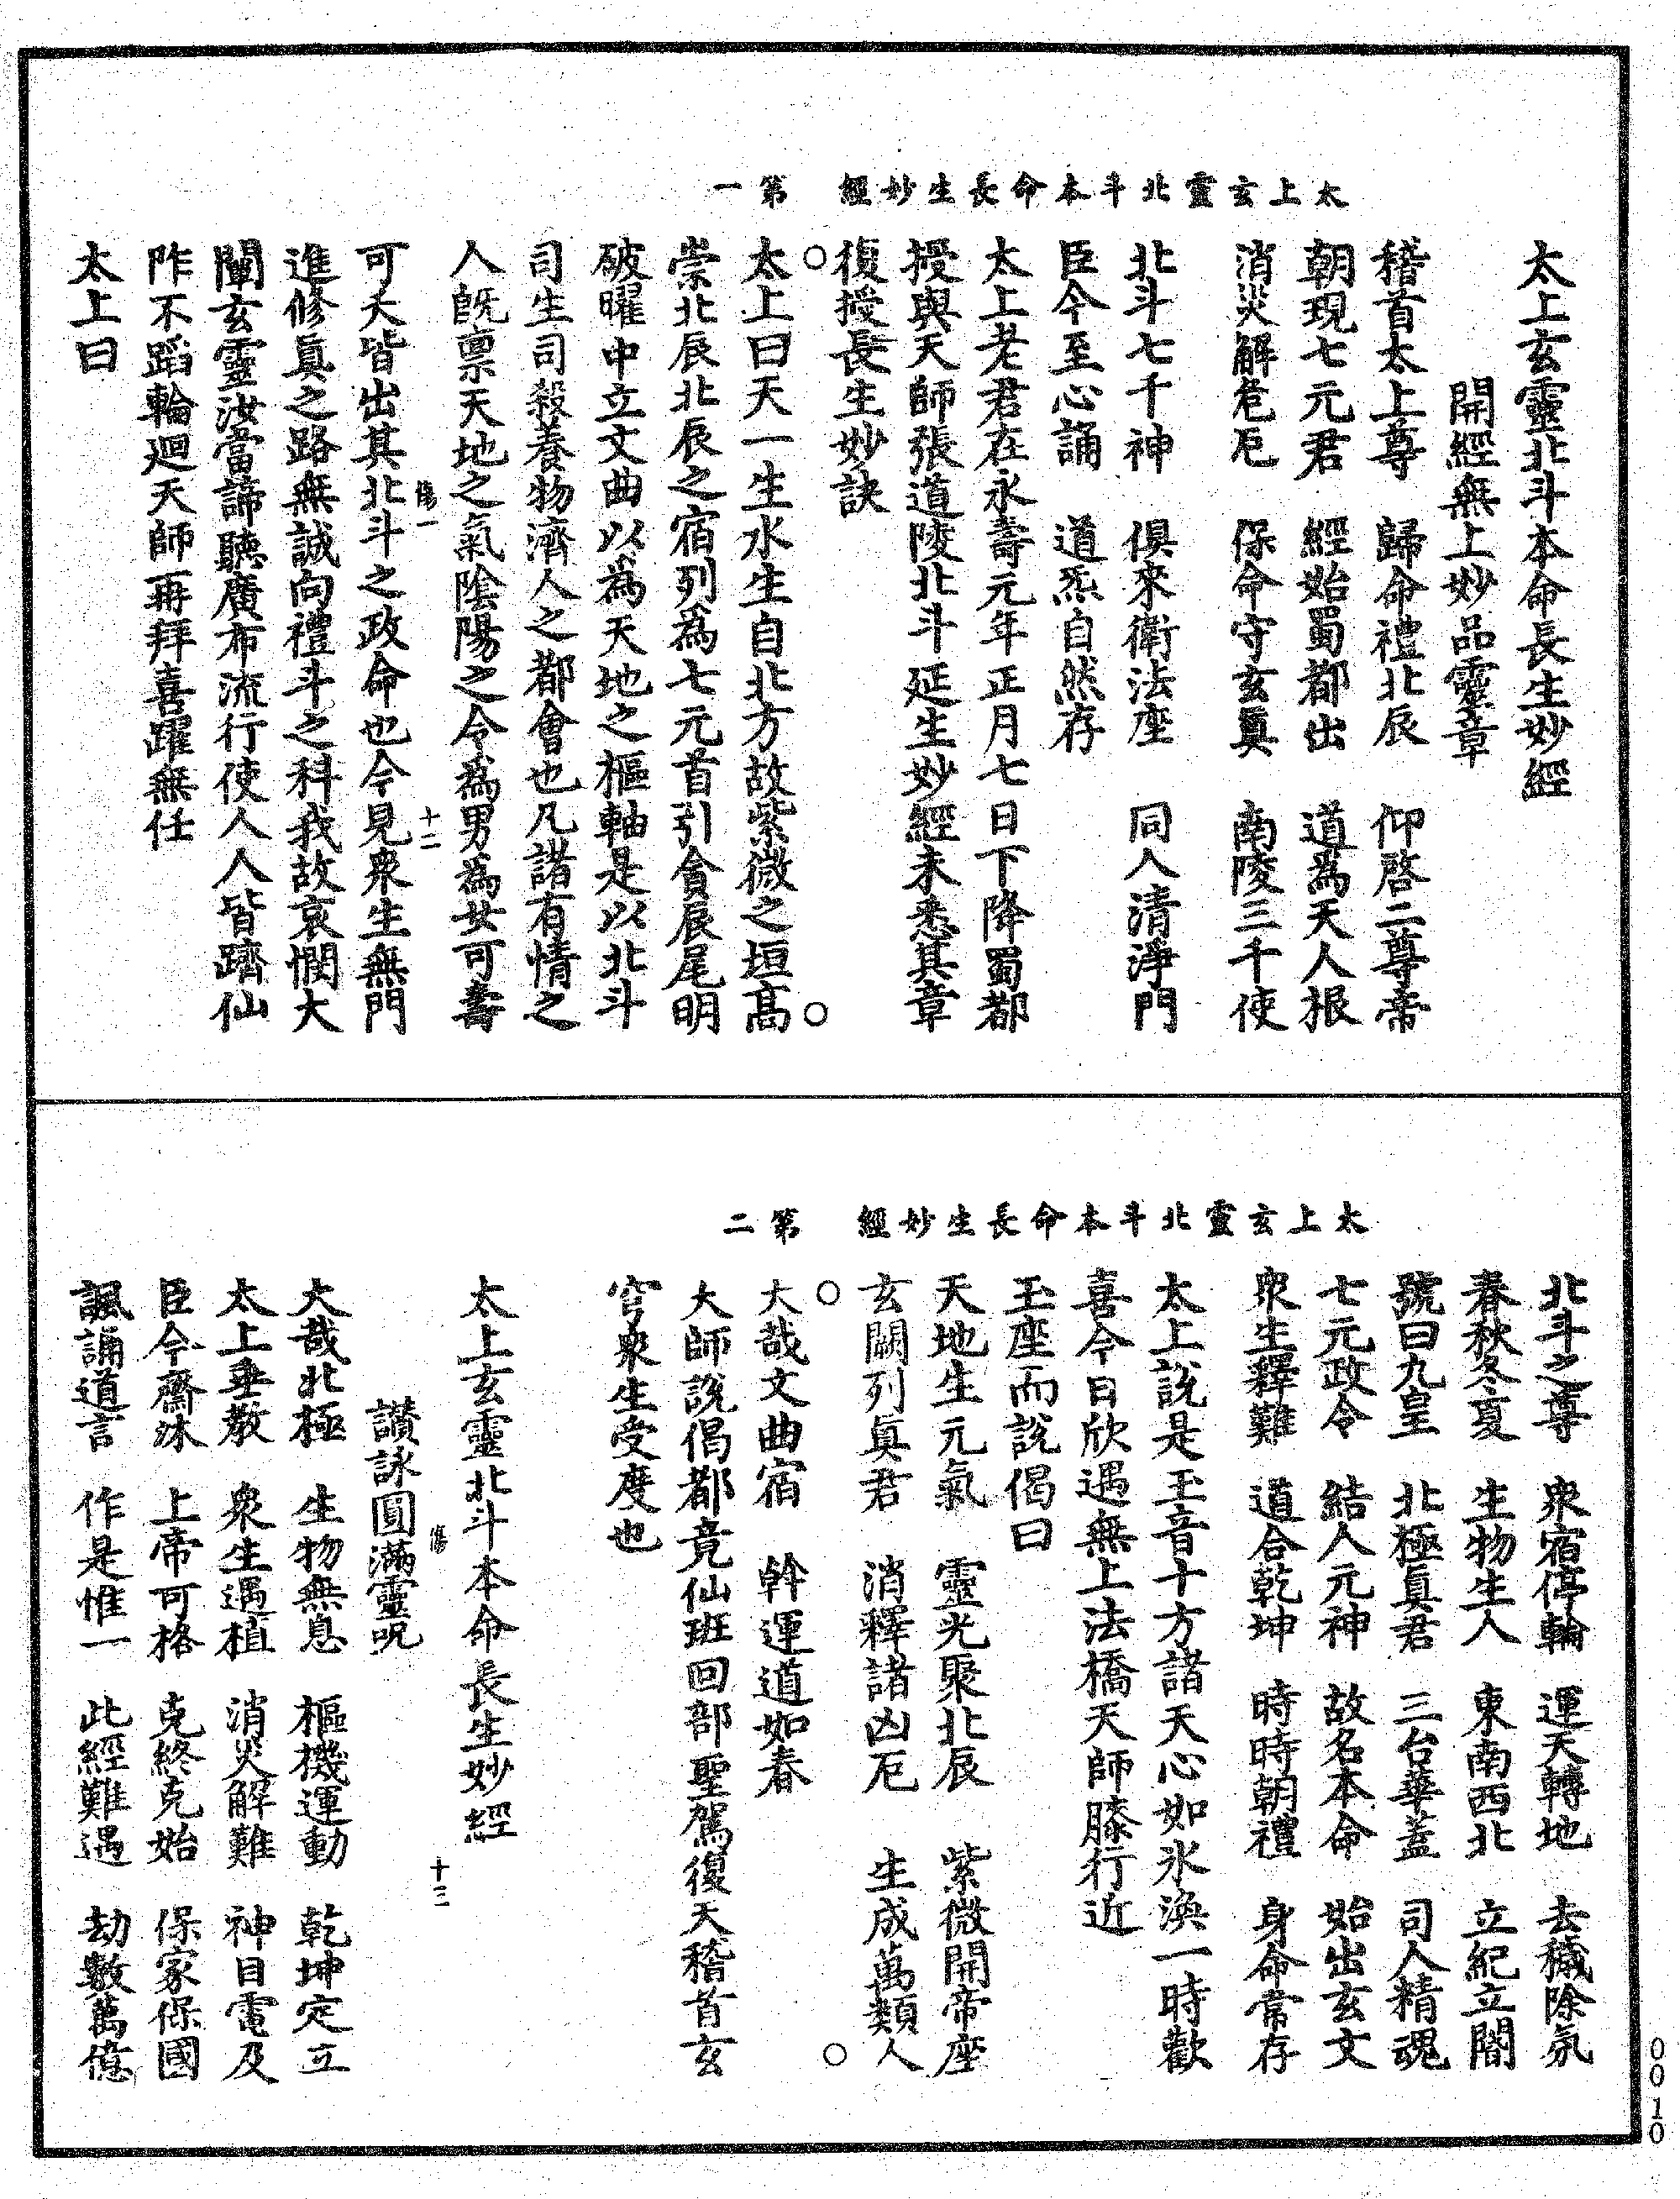 太上玄靈北斗本命長生妙經　第一
太上玄靈北斗本命長生妙經
開經無上妙品靈章
稽首太上尊　歸命禮北辰　仰啓二尊帝
朝現七元君　經始蜀都出　道為天人根
消災解危厄　保命守玄眞　南陵三千使
北斗七千神　俱來衛法座　同入清淨門
臣今至心誦　道炁自然存
太上老君在永壽元年正月七日下降蜀都
授與天師張道陵北斗延生妙經未悉其章
復授長生妙訣
○　○
太上曰天一生水生自北方故紫微之垣高
崇北辰北辰之宿列為七元首引貪辰尾明
破曜中立文曲以為天地之樞軸是以北斗
司生司殺養物濟人之都會也凡諸有情之
人既禀天地之氣陰陽之令為男為女可壽
傷一　十二
可夭皆出其北斗之政命也今見衆生無門
進修眞之路無誠向禮斗之科我故哀憫大
闡玄靈汝當諦聽廣布流行使人人皆躋仙
阼不蹈輪廻天師再拜喜躍無任
太上曰
太上玄靈北斗本命長生妙經　第二
北斗之尊　衆宿停輪　運天轉地　去穢除氛
春秋冬夏　生物生人　東南西北　立紀立闇
號曰九皇　北極眞君　三台華蓋　司人精魂
七元政令　結人元神　故名本命　始出玄文
衆生釋難　道合乾坤　時時朝禮　身命常存
太上說是玉音十方諸天心如氷渙一時歡
喜今日欣遇無上法橋天師膝行近
玉座而說偈曰
天地生元氣　靈光聚北辰　紫微開帝座
玄闢列眞君　消釋諸凶厄　生成萬類人
○　○
大哉文曲宿　斡運道如春
大師說偈都竟仙班回部聖駕復天稽首玄
穹衆生受度也
太上玄靈北斗本命長生妙經
傷　十三
讃詠圓滿靈呪
大哉北極　生物無息　樞機運動　乾坤定立
太上垂教　衆生遇植　消災解難　神目電及
臣今齋沐　上帝可格　克終克始　保家保國
諷誦道言　作是惟一　此經難遇　劫數萬億
0010